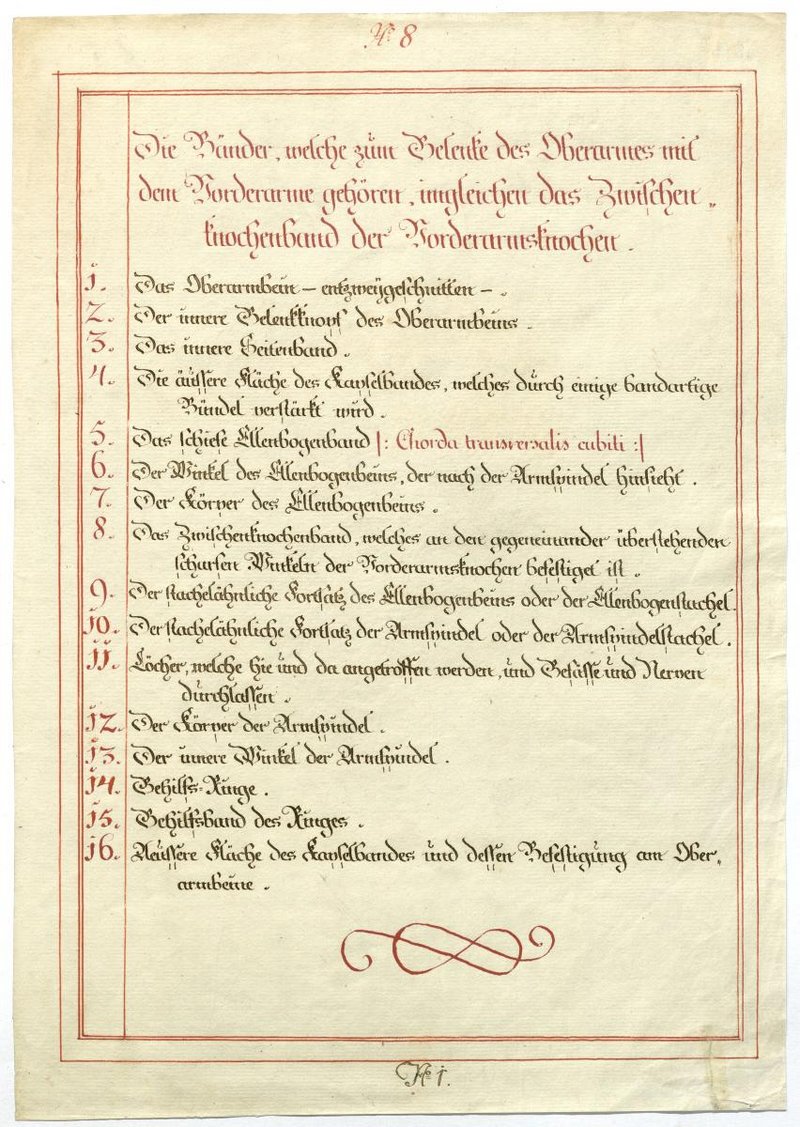 No 8
Die Bänder, welche zum Gelenke des Oberarmes mit
dem Vorderarme gehören, imgleichen das Zwischen„
knochenband der Vorderarmsknochen.
1. Das Oberarmbein – entzweygeschnitten –.
2. Der innere Gelenkknopf des Oberarmbeins.
3. Das innere Seitenband.
4. Die äussere Fläche des Kapselbandes, welches durch einige bandartige
Bündel verstärkt wird.
5. Das schiefe Ellenbogenband |: Chorda transversalis cubiti :|
6. Der Winkel des Ellenbogenbeins, der nach der Armspindel hinsieht.
7. Der Körper des Ellenbogenbeins.
8. Das Zwischenknochenband, welches an den gegeneinander überstehenden
scharfen Winkeln der Vorderarmsknochen befestiget ist.
9. Der stachelähnliche Fortsatz des Ellenbogenbeins oder der Ellenbogenstachel.
10. Der stachelähnliche Fortsatz der Armspindel oder der Armspindelstachel.
11. Löcher, welche hie und da angetroffen werden, und Gefässe und Nerven
durchlassen.
12. Der Körper der Armspindel.
13. Der innere Winkel der Armspindel.
14. Gehilfs-Ringe.
15. Gehilfsband des Ringes.
16. Aeussere Fläche des Kapselbandes und dessen Befestigung am Ober„
armbeine.
No 1.